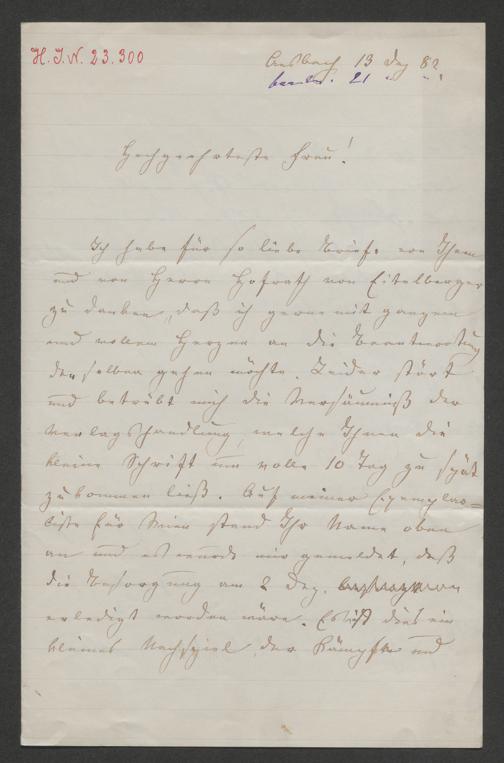 H. I. N. 23.300
Ansbach 13 Dez 82
beantw. 21 " "
Hochgeehrteste Frau!
Ich habe für so liebe Briefe von Ihnen
und von Herrn Hofrath von Eitelberger
zu danken, daß ich gerne mit ganzem
und vollem Herzen an die Beantwortung
derselben gehen möchte. Leider stört
und betrübt mich die Versäumniß der
Verlagshandlung, welche Ihnen die
kleine Schrift um volle 10 Tag zu spät
zukommen ließ. Auf meiner Exemplar-
liste für Wien stand Ihr Name oben
an und es wurde mir gemeldet, daß
die Besorgung am 2 Dez.
erledigt worden wäre. Es ist dies ein
kleines Nachspiel der Kämpfe und